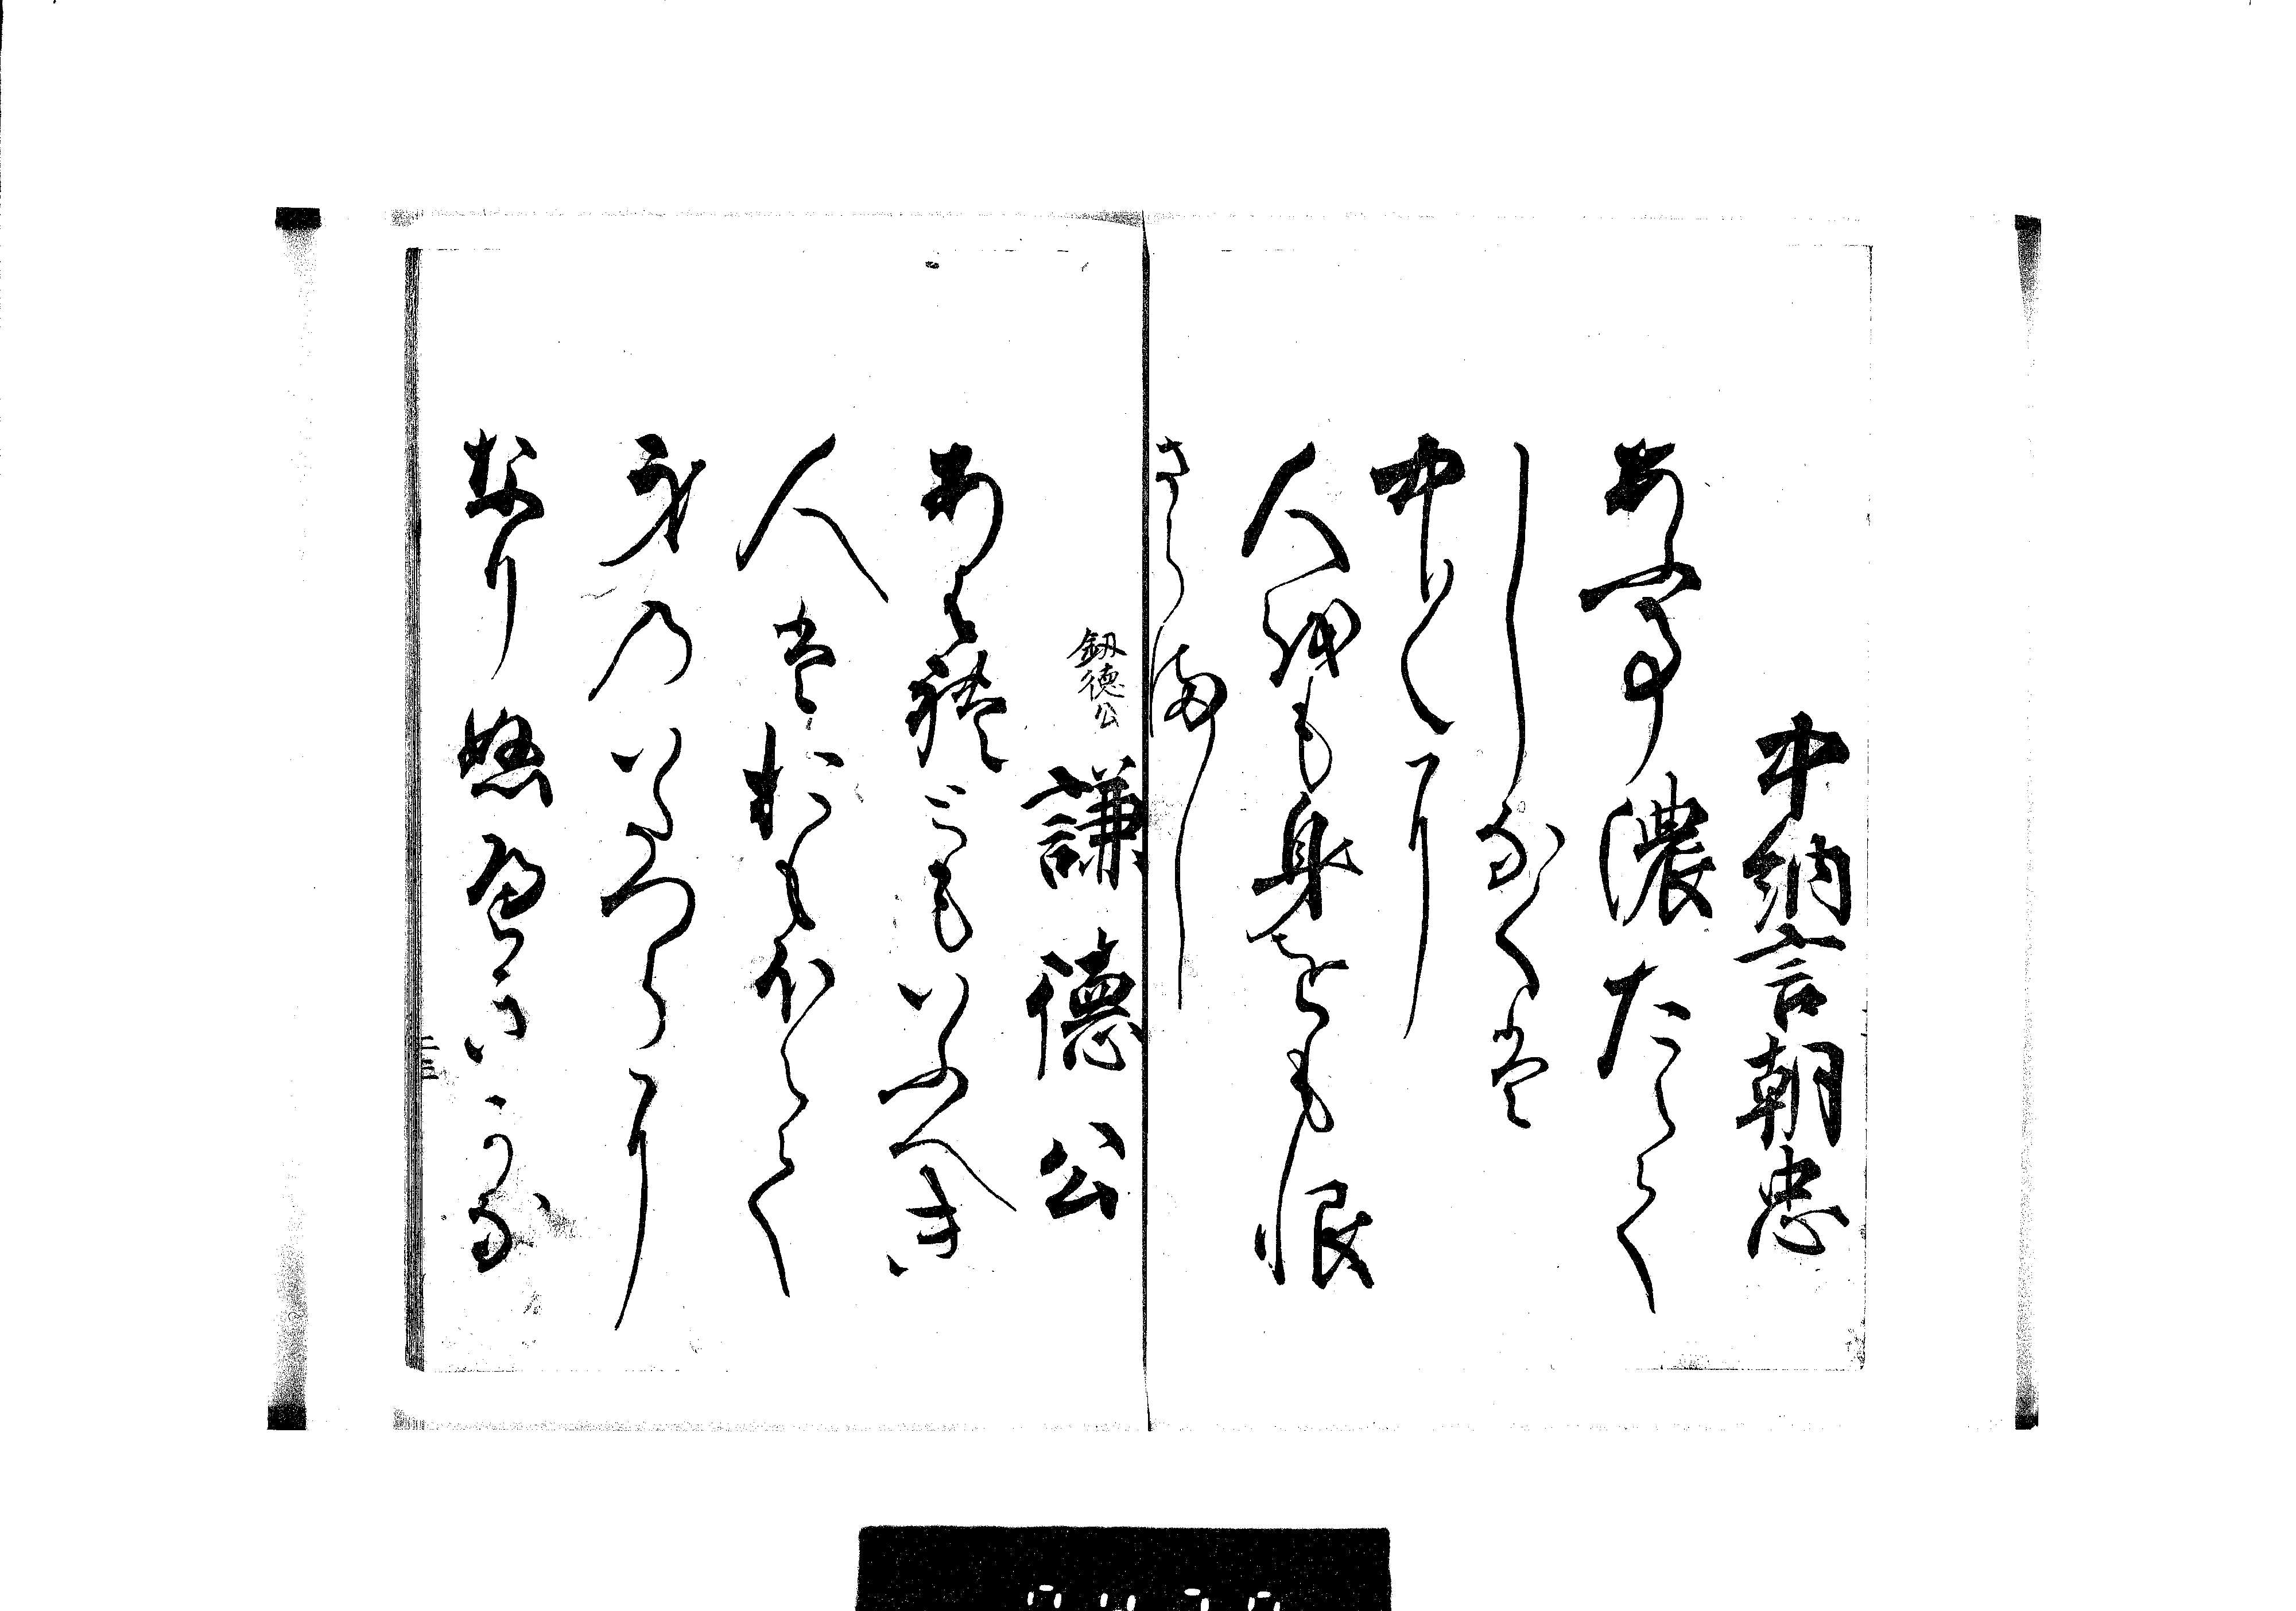 中納言朝忠
あふ事濃たえて
しなくは
中〳〵に
人越も身をも恨
さらまし
謙徳公
釼徳公
あはれともいふへき
人はおもほえて
身のいたつらに
なりぬへきかな
二十三